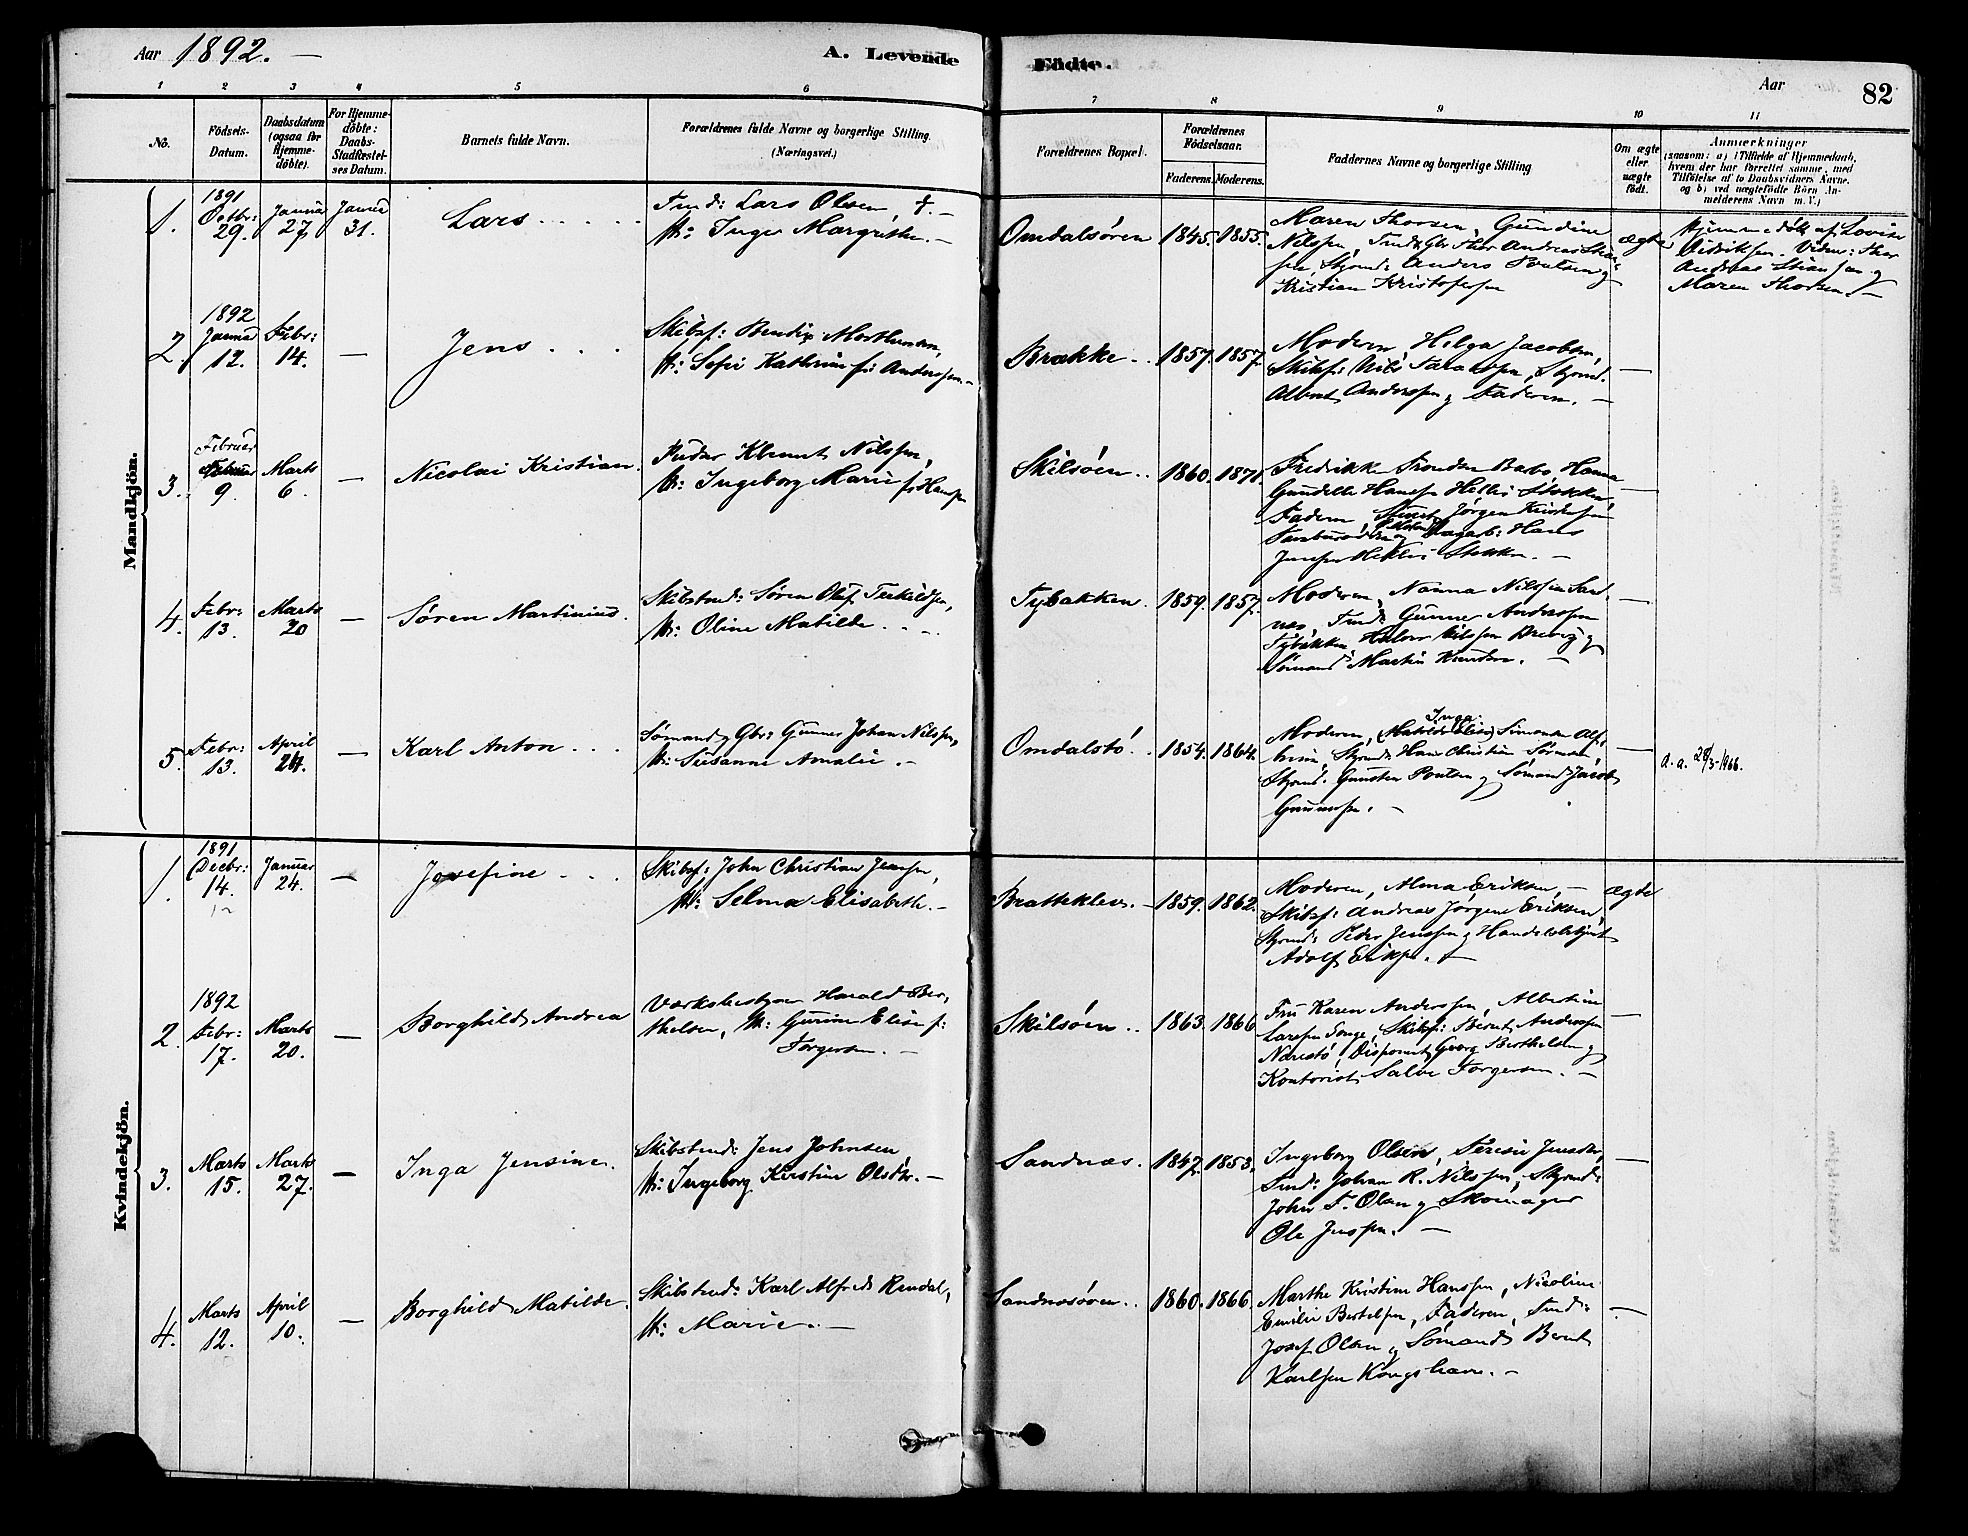 Aar 1892. —
A. Levende
Födte.
Aar
82
1 2 3 4 5 6 7 8 9 10 11
No.
Födsels-
Datum.
Daabsdatum
(ogsaa for
Hjemme-
döbte).
For Hjemme-
döbte:
Daabs-
Stadfæstel-
ses Datum.
Barnets fulde Navn.
Forældrenes fulde Navne og borgerlige Stilling.
(Næringsvei.)
Forældrenes Bopæl.
Forældrenes
Födselsaar.
Faderens. Moderens.
Faddernes Navne og borgerlige Stilling
Om ægte
eller
uægte
födt.
Anmærkninger
(saasom: a) i Tilfælde af Hjemmedaab,
hvem der har forrettet samme, med
Tilföielse af to Daabsvidners Navne.
og b) ved uægtefödte Börn An-
melderens Navn m. V.)
Mandkjön.
1.
1891
Octbr:
29.
Januar
27.
Januar
31.
Lars
Tmd: Lars Olsen, †. —
H: Inger Margrethe. —
Omdalsøren
1845. 1855.
Maren Thorsen, Gundine
Nilssen, Tmd & Gbr Thor Andreas
Styrmd: Anders Poulsen og
Kristian Kristofersen
ægte
Hjemmedöbt af Lovise
Didriksen. Vidner: Thor
Andreas og
Maren Thorsen. —
2.
1892
Januar
12.
Febr:
14.
—
Jens
Skibsf: Bendix Morthensen,
H: Sofie Kathrine f: Anderssen. —
Brække
1857. 1857.
Moderen, Helga Jacobsen,
Skibsf: Nils Taraldsen, Styrmd.
Albert Anderssen og Faderen. —
—
3.
Februar
9.
Marts
6.
—
Nicolai Kristian
Klemet Nilssen,
H: Ingeborg Marie f: Hansen
Skilsøen
1860. 1871.
Fredrikke Trondsen Babo, Hanna
Gundelle Hansen Helle Stokken
Faderen, Jørgen
Hans
Jensen Helle Stokken. —
—
4.
Febr:
13.
Marts
20
—
Søren Martinius.
Skibstmd: Søren Olaf Terkildsen,
H: Oline Matilde
Tybakken.
1859. 1857.
Moderen, Nanna Nilssen Sand-
næs, Tmd: Gunner Anderssen
Tybakken, Halvor Nilssen og
Sømand Martin Knudsen. —
—
5.
Febr:
13.
April
24.
—
Karl Anton
Sømand og Gbr: Gunner Johan Nilssen,
H: Susanne Amalie. —
Omdalstø
1854. 1864.
Inga
Moderen, Simonsen Alf-
heim, Styrmd: Hans Christian Sørensen,
Styrmd. Gunsten Poulsen og Sømand Jacob
Gunnersen. —
—
d. a. 28/3-1966.
Kvindekjön.
1.
1891
Decbr:
14.
Januar
24.
—
Josefine
Skibsf: John Christian Jensen,
H: Selma Elisabeth. —
Bratteklev. —
1859. 1862.
Moderen, Alma Eriksen, —
Skibsf: Andreas Jørgene Eriksen,
Styrmd: Peder Jenssen og Handelsbetjent
Adolf Eriksen. —
ægte
2.
1892
Febr:
17.
Marts
20.
—
Borghild Andrea
Værksbestyrer Harald Ber-
thelsen, H: Gurine Elise f:
Torgersen. —
Skilsøen
1863. 1866
Fru Karen Anderssen, Albertine
Larssen Songe, Skibsf: Bernt Anderssen
Narestø, Disponent Georg Berthelsen og
Kontorist Salve Torgersen. —
—
3.
Marts
15.
Marts
27.
—
Inga Jensine.
Skibstmd: Jens Johnsen
H: Ingeborg Kirstine Olsdtr. —
Sandnæs.
1847. 1853.
Ingeborg Olsen, Teresie Jensdtr,
Tmd: Johan R. Nilssen, Styrmd:
John T. Olsen og Skomager
Ole Jenssen. —
—
4.
Marts
12.
April
10.
—
Borghild Matilde.
Skibstmd: Karl Alfred Rendal,
H: Marie. —
Sandnæsøen
1860. 1866.
Marthe Kristine Hanssen, Nicoline
Emilie Bertelsen, Faderen, Tmd:
Josef Olsen og Sømand Bernt
Karlsen Kongshavn. —
—